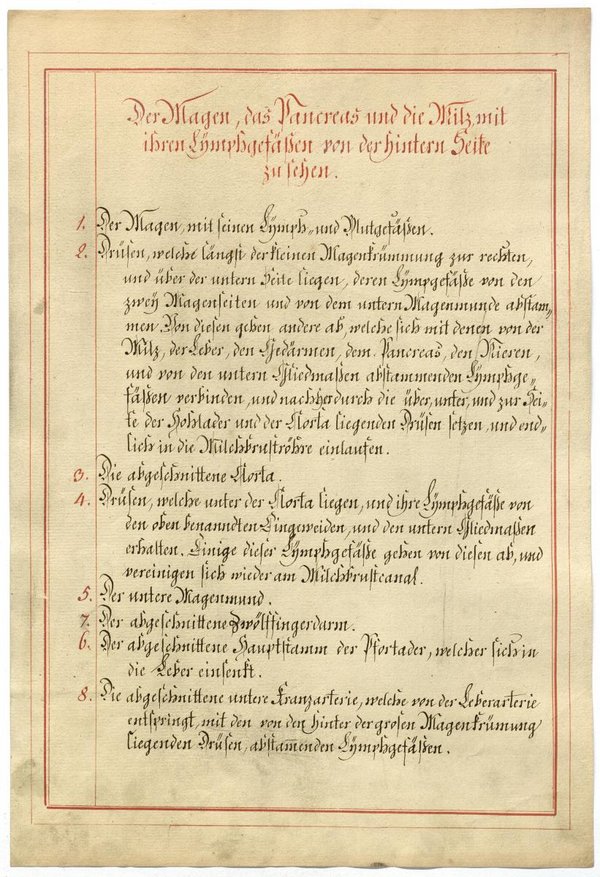 Der Magen, das Pancreas und die Milz, mit
ihren Lÿmphgefäßen von der hintern Seite
zu sehen.
1. Der Magen, mit seinen Lÿmph- und Blutgefäßen.
2. Drüsen, welche längst der kleinen Magenkrümmung zur rechten,
und über der untern Seite liegen, deren Lÿmpgefäße von den
zweÿ Magenseiten und von dem untern Magenmunde abstam-
men. Von diesen gehen andere ab, welche sich mit denen von der
Milz, der Leber, den Gedärmen, dem Pancreas, den Nieren,
und von den untern Gliedmaßen abstammenden Lÿmphge-
fäßen verbinden, und nachher durch die über, unter, und zur Sei-
te der Hohlader und der Aorta liegenden Drüsen setzen, und end-
lich in die Milchbruströhre einlaufen.
3. Die abgeschnittene Aorta.
4. Drüsen, welche unter der Aorta liegen, und ihre Lÿmphgefäße von
den oben benanndten Eingeweiden, und den untern Gliedmaßen
erhalten. Einige dieser Lÿmphgefäße gehen von diesen ab, und
vereinigen sich wieder am Milchbrustcanal.
5. Der untere Magenmund.
7. Der abgeschnittene Zwölffingerdarm.
6. Der abgeschnittene Hauptstamm der Pfortader, welcher sich in
die Leber einsenkt.
8. Die abgeschnittene untere Kranzarterie, welche von der Leberarterie
entspringt, mit den von den hinter der grosen Magenkrümung
liegenden Drüsen, abstamenden Lÿmphgefäßen.